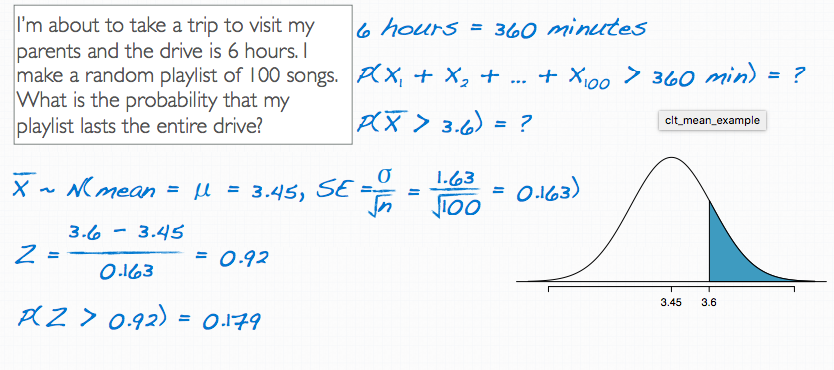 I'm about to take a trip to visit my
parents and the drive is 6 hours. I
make a random playlist of 100 songs.
What is the probability that my
playlist lasts the entire drive?
6 hours = 360 minutes
P(X₁ + X₂ + ... + X₁₀₀ > 360 min) = ?
P(X̄ > 3.6) = ?
clt_mean_example
X̄ ~ N(mean = μ = 3.45, SE = σ/√n = 1.63/√100 = 0.163)
Z = (3.6 - 3.45)/0.163 = 0.92
P(Z > 0.92) = 0.179
3.45 3.6